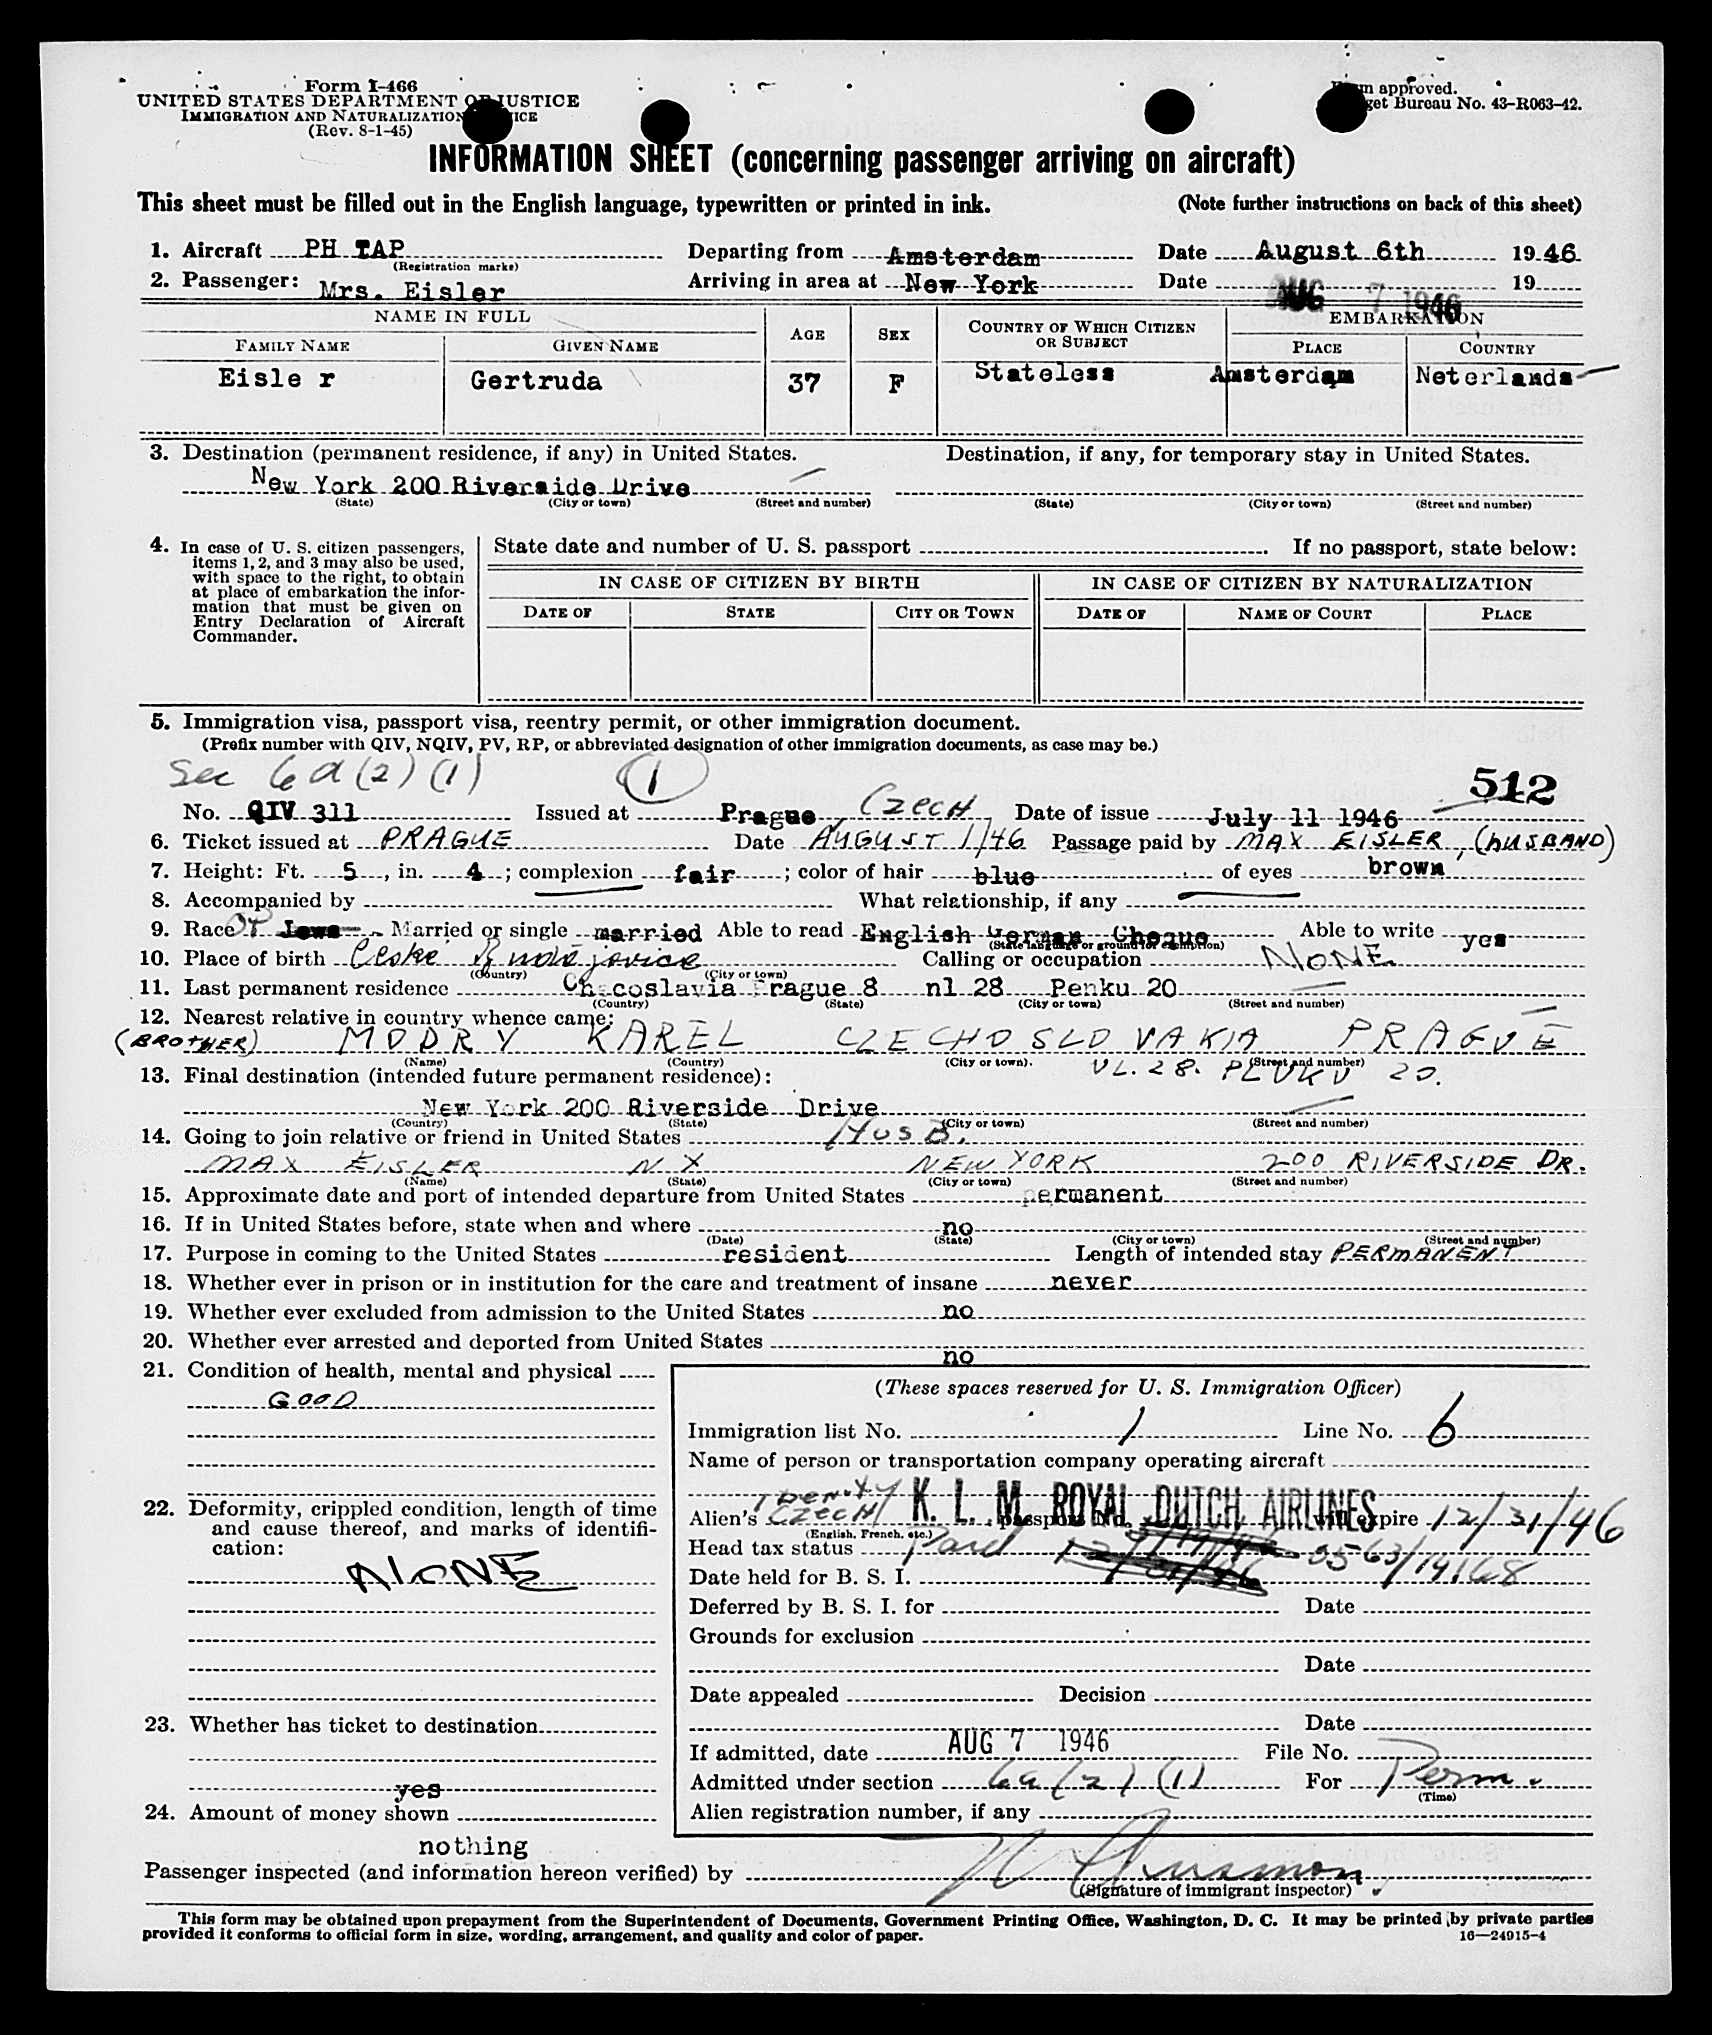 Form I-466
UNITED STATES DEPARTMENT OF JUSTICE
IMMIGRATION AND NATURALIZATION SERVICE
(Rev. 8-1-45)
Form approved.
Budget Bureau No. 43-R063-42.
INFORMATION SHEET (concerning passenger arriving on aircraft)
This sheet must be filled out in the English language, typewritten or printed in ink. (Note further instructions on back of this sheet)
1. Aircraft PH TAP Departing from Amsterdam Date August 6th 19 46
(Registration marks)
2. Passenger: Mrs. Eisler Arriving in area at New York Date AUG 7 1946 19
NAME IN FULL AGE SEX COUNTRY OF WHICH CITIZEN OR SUBJECT EMBARKATION
FAMILY NAME GIVEN NAME PLACE COUNTRY
Eisle r Gertruda 37 F Stateless Amsterdam Neterlands
3. Destination (permanent residence, if any) in United States. Destination, if any, for temporary stay in United States.
New York 200 Riverside Drive
(State) (City or town) (Street and number) (State) (City or town) (Street and number)
4. In case of U. S. citizen passengers, items 1, 2, and 3 may also be used, with space to the right, to obtain at place of embarkation the information that must be given on Entry Declaration of Aircraft Commander.
State date and number of U. S. passport . If no passport, state below:
IN CASE OF CITIZEN BY BIRTH IN CASE OF CITIZEN BY NATURALIZATION
DATE OF STATE CITY OR TOWN DATE OF NAME OF COURT PLACE
5. Immigration visa, passport visa, reentry permit, or other immigration document.
(Prefix number with QIV, NQIV, PV, RP, or abbreviated designation of other immigration documents, as case may be.)
Sec 6a(2)(1) 1 512
No. QIV 311 Issued at Prague, CZECH Date of issue July 11 1946
6. Ticket issued at PRAGUE Date AUGUST 1/46 Passage paid by MAX EISLER, (HUSBAND)
7. Height: Ft. 5, in. 4; complexion fair; color of hair blue of eyes brown
8. Accompanied by What relationship, if any
9. Race Married or single married Able to read English German Cheque Able to write yes
(State language or ground for exemption)
10. Place of birth Ceske Calling or occupation NONE
(Country) (City or town)
11. Last permanent residence Checoslavia Prague 8 nl 28 Penku 20
(Country) (State) (City or town) (Street and number)
12. Nearest relative in country whence came:
(BROTHER) MODRY KAREL CZECHOSLOVAKIA PRAGUE
(Name) (Country) (City or town). (Street and number)
UL. 28. PLUKU 20.
13. Final destination (intended future permanent residence):
New York 200 Riverside Drive
(Country) (State) (City or town) (Street and number)
14. Going to join relative or friend in United States HUSB.
MAX EISLER N Y NEW YORK 200 RIVERSIDE DR.
(Name) (State) (City or town) (Street and number)
15. Approximate date and port of intended departure from United States permanent
16. If in United States before, state when and where no
(Date) (State) (City or town) (Street and number)
17. Purpose in coming to the United States resident Length of intended stay PERMANENT
18. Whether ever in prison or in institution for the care and treatment of insane never
19. Whether ever excluded from admission to the United States no
20. Whether ever arrested and deported from United States no
21. Condition of health, mental and physical
GOOD
22. Deformity, crippled condition, length of time and cause thereof, and marks of identification:
NONE
23. Whether has ticket to destination
yes
24. Amount of money shown
nothing
(These spaces reserved for U. S. Immigration Officer)
Immigration list No. 1 Line No. 6
Name of person or transportation company operating aircraft
K. L. M. ROYAL DUTCH AIRLINES
Alien's Identity CZECH passport No. will expire 12/31/46
(English, French, etc.)
Head tax status Paid 0563/14168
Date held for B. S. I.
Deferred by B. S. I. for Date
Grounds for exclusion
Date
Date appealed Decision
Date
If admitted, date AUG 7 1946 File No.
Admitted under section 6a(2)(1) For Perm.
(Time)
Alien registration number, if any
Passenger inspected (and information hereon verified) by
(Signature of immigrant inspector)
This form may be obtained upon prepayment from the Superintendent of Documents, Government Printing Office, Washington, D. C. It may be printed by private parties
provided it conforms to official form in size, wording, arrangement, and quality and color of paper. 16—24915-4